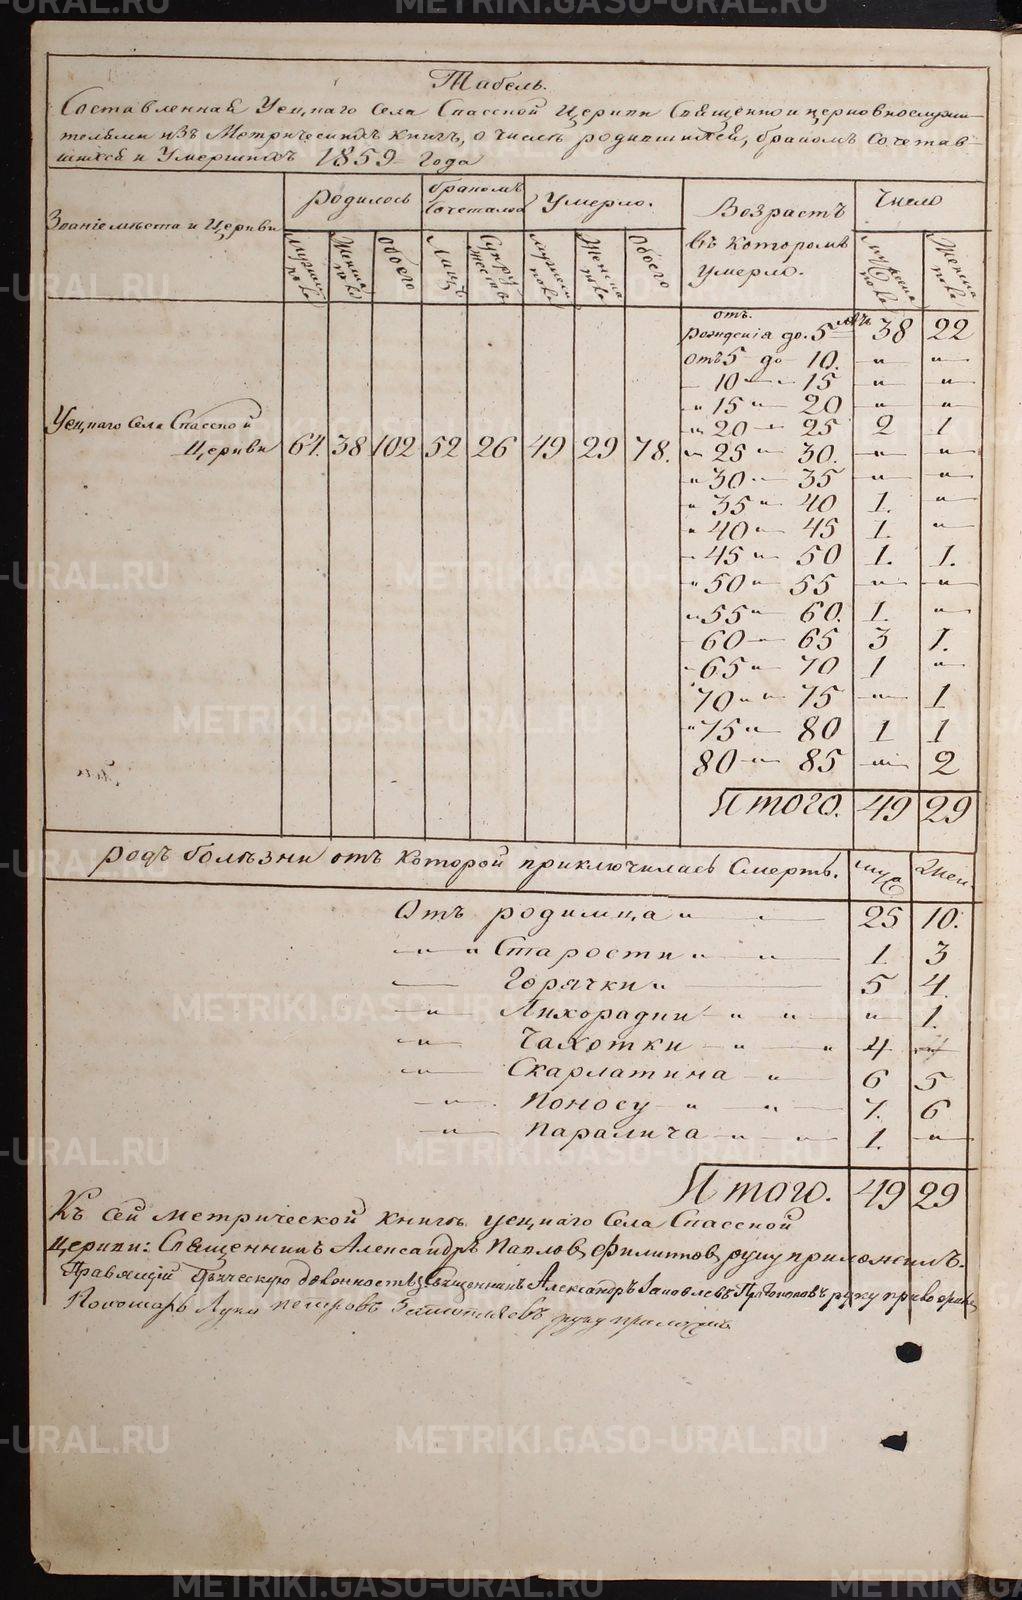 Табель.
Составленная Уецкаго села Спасской Церкви Священно и церковнослужи-
тельми изъ Метрическихъ книгъ, о числѣ родившихся, бракомъ Сочетав-
шихся и Умершихъ 1859 Года
Званіе мѣста и Церкви
Родилось
бракомъ Сочеталось
Умерло.
Возрастъ въ которомъ умерло.
Число
мужеска пола
Женска пола
Обоего
Лицъ
Супружествъ
мужеска пола
Женска пола
Обоего
мужеска пола
Женска пола
отъ рожденія до 5 лѣтъ 38 22
отъ 5 до 10. " "
— 10 — " 15 " "
" 15 " 20 " "
" 20 — 25 2 1
Уецкаго Села Спасской
Церкви 64. 38 102 52 26 49 29 78.
" 25 " 30. " "
" 30 " 35 " "
" 35 " 40 1. "
" 40 " 45 1. "
— 45 " 50 1. 1.
" 50 " 55 " "
" 55 " 60. 1. "
— 60 — 65 3 1.
" 65 " 70 1 "
" 70 " 75 " 1
" 75 " 80 1 1
80 — 85 " 2
Итого. 49 29
Родъ болѣзни отъ которой приключилась Смерть. муж Жен.
Отъ родимца " — 25 10.
— " " Старости " " 1 3
— Горячки " — 5 4.
— " Лихорадки " " " 1.
— " Чахотки — " " 4 "
— " Скарлатина — " 6 5
— " Поносу — " " 7. 6
— " Паралича — " " 1. "
Итого. 49 29
Къ сей метрической книгѣ Уецкаго Села Спасской
Церкви: Священникъ Александръ Павловъ Филиппов руку приложилъ.
Правящій Дьяческую должность Священникъ Александръ руку
Пономарь Лука Петровъ руку приложилъ